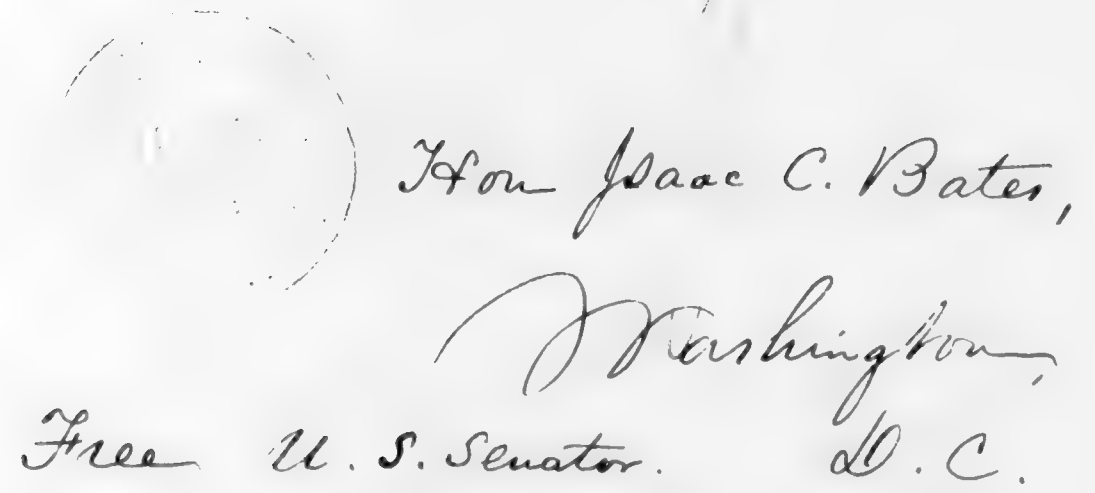 Hon Isaac C. Bates,
Washington,
Free U. S. Senator. D. C.